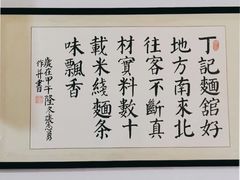 丁記麵舘好
地方南來北
往客不斷真
材實料數十
載米綫麵条
味飄香
歲在甲午隆冬張志勇
作并書